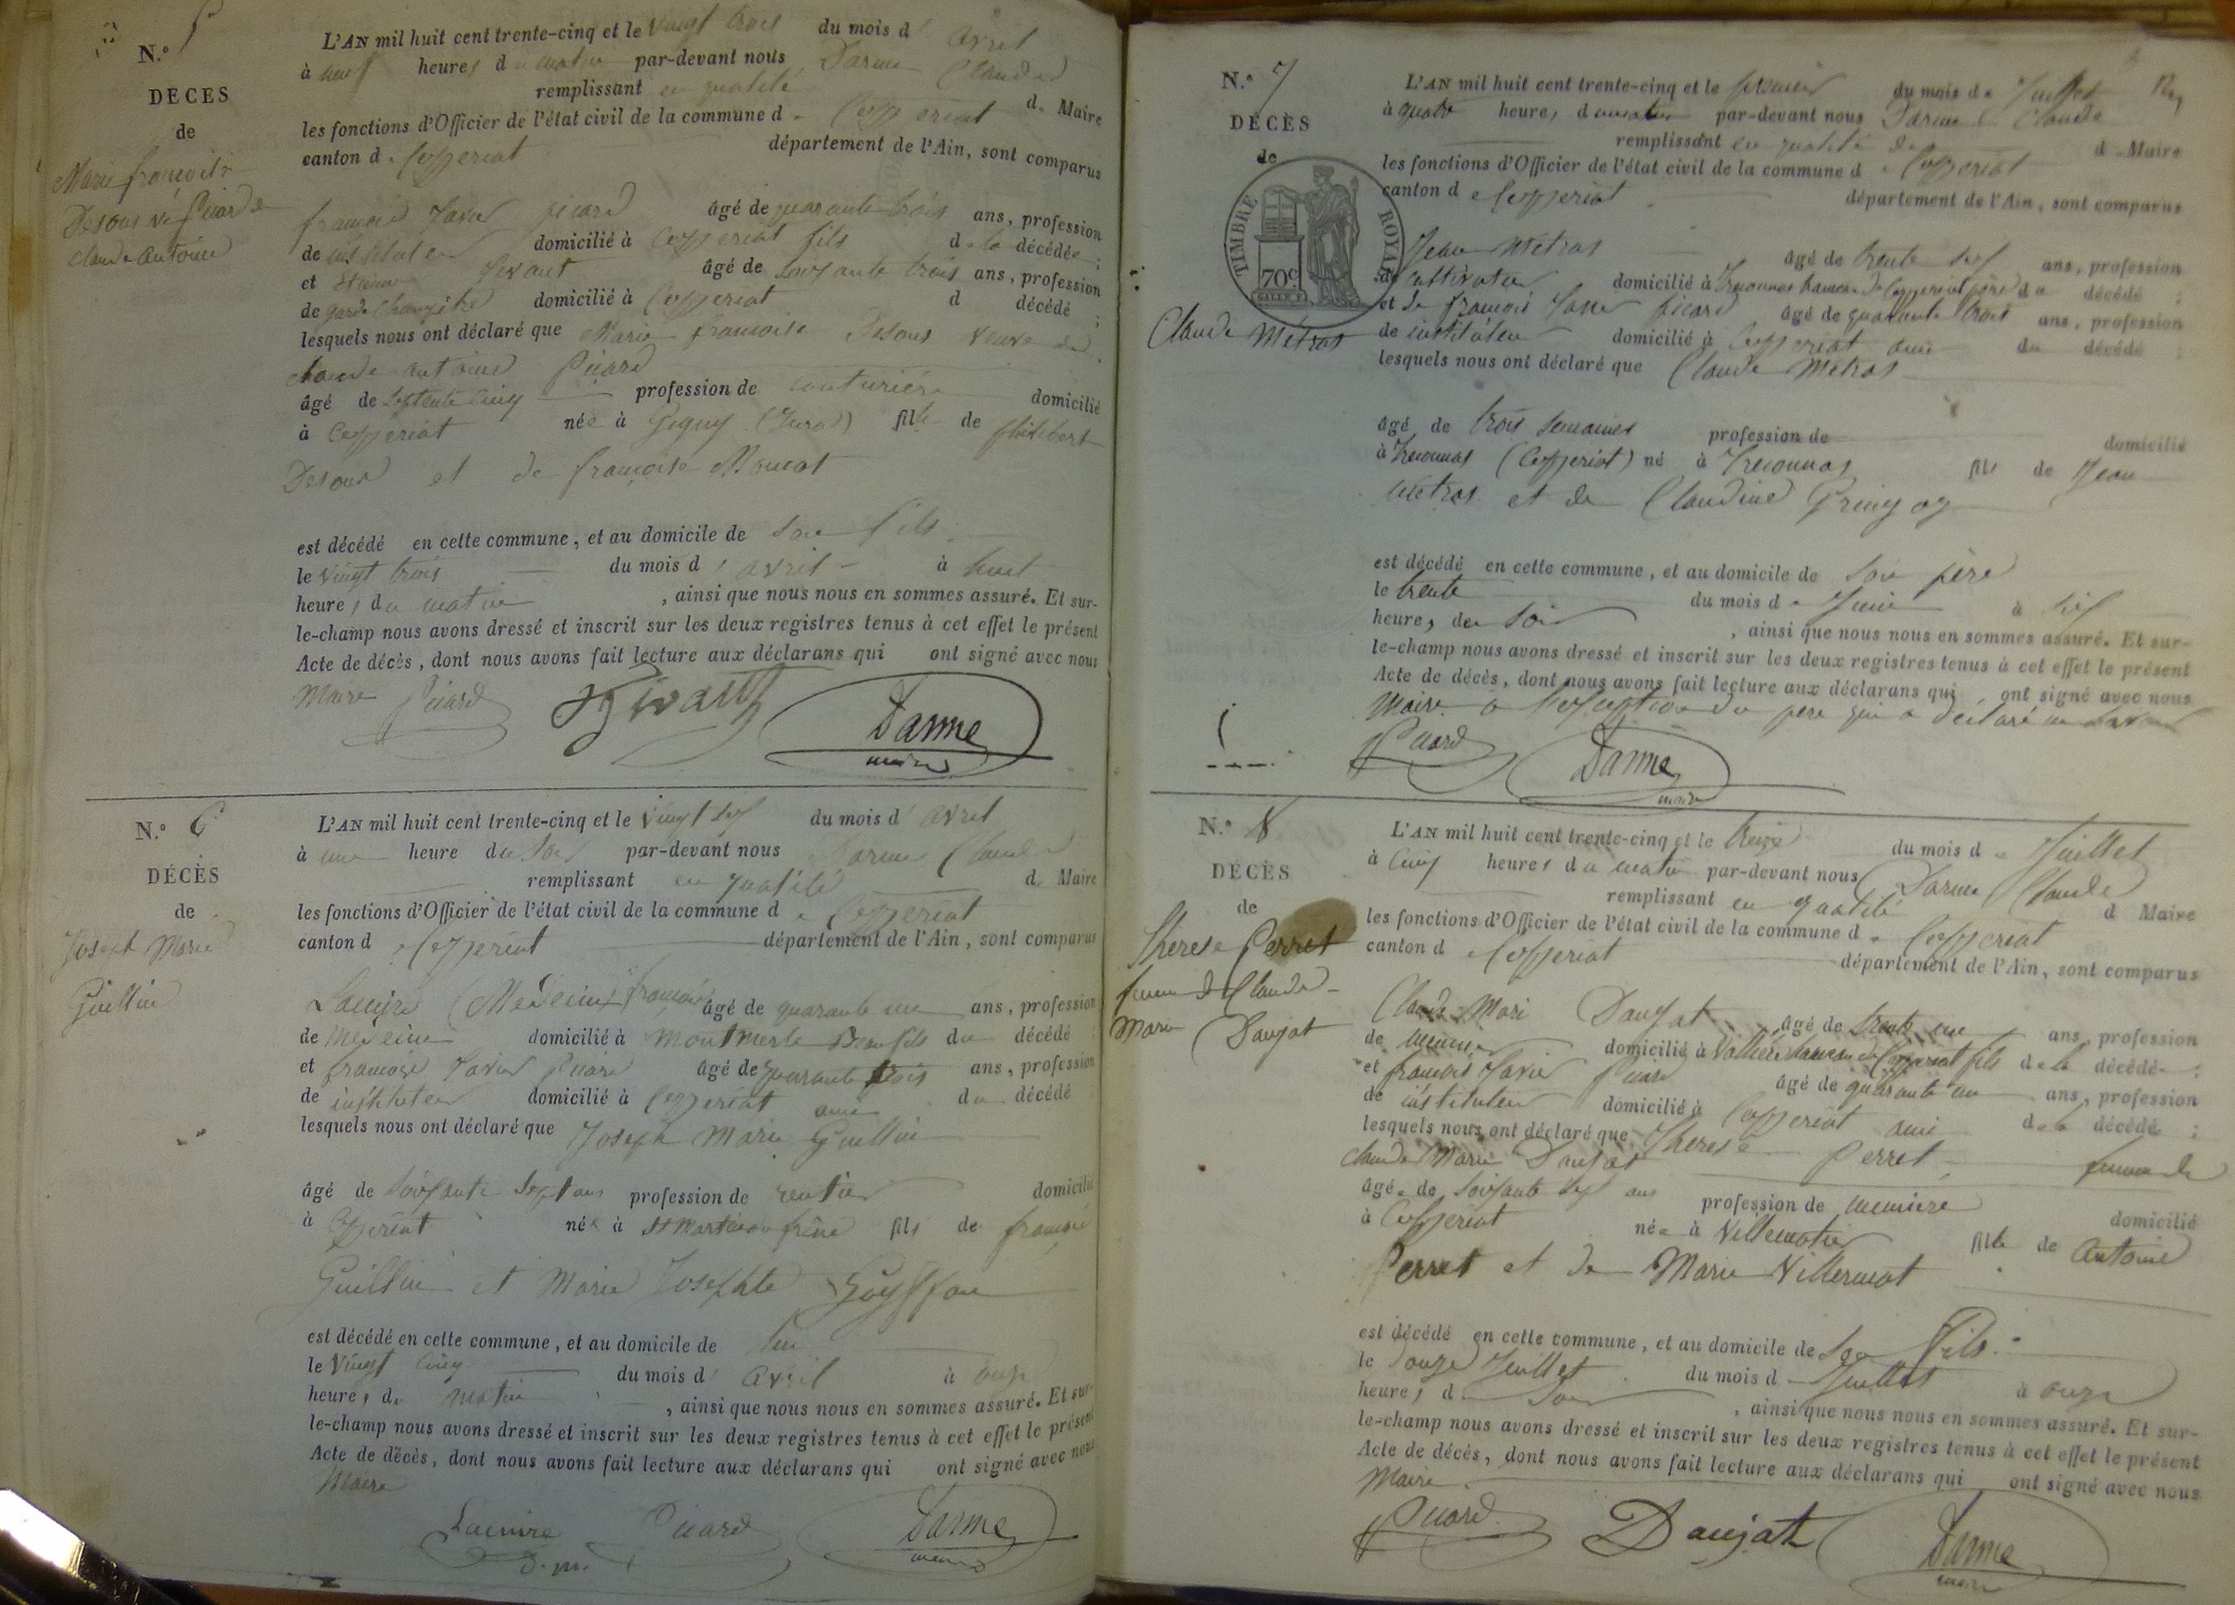 N.o 5
DÉCÈS
de
Marie françoise
Desous vé Picard
claude antoine
L'AN mil huit cent trente-cinq et le vingt trois du mois d' avril
à neuf heures du matin par-devant nous Darme Claude
remplissant en qualité de Maire
les fonctions d'Officier de l'état civil de la commune de Ceyzeriat
canton de Ceyzeriat département de l'Ain, sont comparus
françois Xavier picard âgé de quarante trois ans, profession
de instituteur domicilié à Ceyzeriat fils de la décédée ;
et Etienne âgé de soixante trois ans, profession
de garde champêtre domicilié à Ceyzeriat d décédé ;
lesquels nous ont déclaré que Marie françoise Desous veuve de
claude antoine Picard
âgé de septente cinq profession de couturière domicilié
à Ceyzeriat née à Gigny (Jura) fille de philibert
Desous et de françoise
est décédé en cette commune, et au domicile de son fils
le vingt trois du mois d' avril à huit
heures du matin , ainsi que nous nous en sommes assuré. Et sur-
le-champ nous avons dressé et inscrit sur les deux registres tenus à cet effet le présent
Acte de décès, dont nous avons fait lecture aux déclarans qui ont signé avec nous
Maire Picard Darme
maire
N.o 6
DÉCÈS
de
Joseph Marie
Guillin
L'AN mil huit cent trente-cinq et le vingt six du mois d' avril
à une heure du soir par-devant nous Darme Claude
remplissant en qualité de Maire
les fonctions d'Officier de l'état civil de la commune de Ceyzeriat
canton de Ceyzeriat département de l'Ain, sont comparus
Lacuire françois âgé de quarante un ans, profession
de medecin domicilié à Montmerle Beau fils du décédé
et françois Xavier Picard âgé de quarante trois ans, profession
de instituteur domicilié à Ceyzeriat ami du décédé
lesquels nous ont déclaré que Joseph Marie Guillin
âgé de soixante sept ans profession de rentier domicilié
à Ceyzeriat né à St Martin du frêne fils de françois
Guillin et Marie Josephte Goyffon
est décédé en cette commune, et au domicile de
le vingt cinq du mois d' avril à onze
heures du matin , ainsi que nous nous en sommes assuré. Et sur-
le-champ nous avons dressé et inscrit sur les deux registres tenus à cet effet le présent
Acte de décès, dont nous avons fait lecture aux déclarans qui ont signé avec nous
Maire
Lacuire Picard Darme
d. m. maire
N.o 7
DÉCÈS
de
TIMBRE ROYAL
70c
Claude Métras
L'AN mil huit cent trente-cinq et le premier du mois de Juillet
à quatre heures du matin par-devant nous Darme Claude
remplissant en qualité de Maire
les fonctions d'Officier de l'état civil de la commune de Ceyzeriat
canton de Ceyzeriat département de l'Ain, sont comparus
Jean Métras âgé de trente six ans, profession
de cultivateur domicilié à Treconnas hameau de Ceyzeriat père du décédé ;
et de françois Xavier picard âgé de quarante trois ans, profession
de instituteur domicilié à Ceyzeriat ami du décédé ;
lesquels nous ont déclaré que Claude Métras
âgé de trois semaines profession de domicilié
à Treconnas (Ceyzeriat) né à Treconnas fils de Jean
Métras et de Claudine
est décédé en cette commune, et au domicile de son père
le trente du mois de Juin à six
heures du soir , ainsi que nous nous en sommes assuré. Et sur-
le-champ nous avons dressé et inscrit sur les deux registres tenus à cet effet le présent
Acte de décès, dont nous avons fait lecture aux déclarans qui ont signé avec nous
Maire à l'exception du pere qui a déclaré ne savoir
Picard Darme
maire
N.o 8
DÉCÈS
de
Therese Perret
femme de Claude
Marie Daujat
L'AN mil huit cent trente-cinq et le treize du mois de Juillet
à cinq heures du matin par-devant nous Darme Claude
remplissant en qualité d Maire
les fonctions d'Officier de l'état civil de la commune de Ceyzeriat
canton de Ceyzeriat département de l'Ain, sont comparus
Claude Mari Daujat âgé de trente un ans, profession
de meunier domicilié à hameau de Ceyzeriat fils de la décédée ;
et françois Xavier Picard âgé de quarante un ans, profession
de instituteur domicilié à Ceyzeriat ami de la décédé ;
lesquels nous ont déclaré que Therese Perret femme de
claude Marie Daujat
âgée de soixante six ans profession de meunière domicilié
à Ceyzeriat née à Villemotier fille de Antoine
Perret et de Marie Villermot
est décédé en cette commune, et au domicile de son fils
le douze Juillet du mois de Juillet à onze
heures du soir , ainsi que nous nous en sommes assuré. Et sur-
le-champ nous avons dressé et inscrit sur les deux registres tenus à cet effet le présent
Acte de décès, dont nous avons fait lecture aux déclarans qui ont signé avec nous
Maire
Picard Daujat Darme
maire